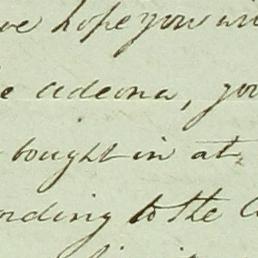 we hope you wi
e adeona, you
bought in at
ording to the